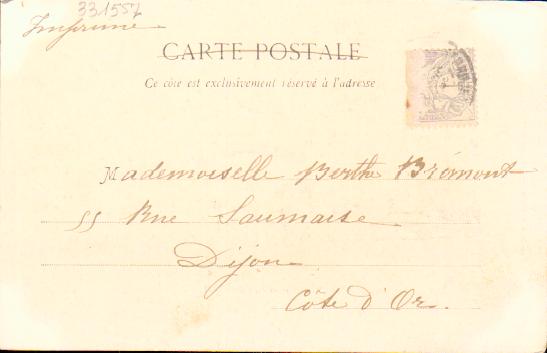 331557
Imprimé
CARTE POSTALE
Ce côté est exclusivement réservé à l'adresse
Mademoiselle Berthe Brémont
55 Rue Saumaise
Dijon
Côte d'Or.